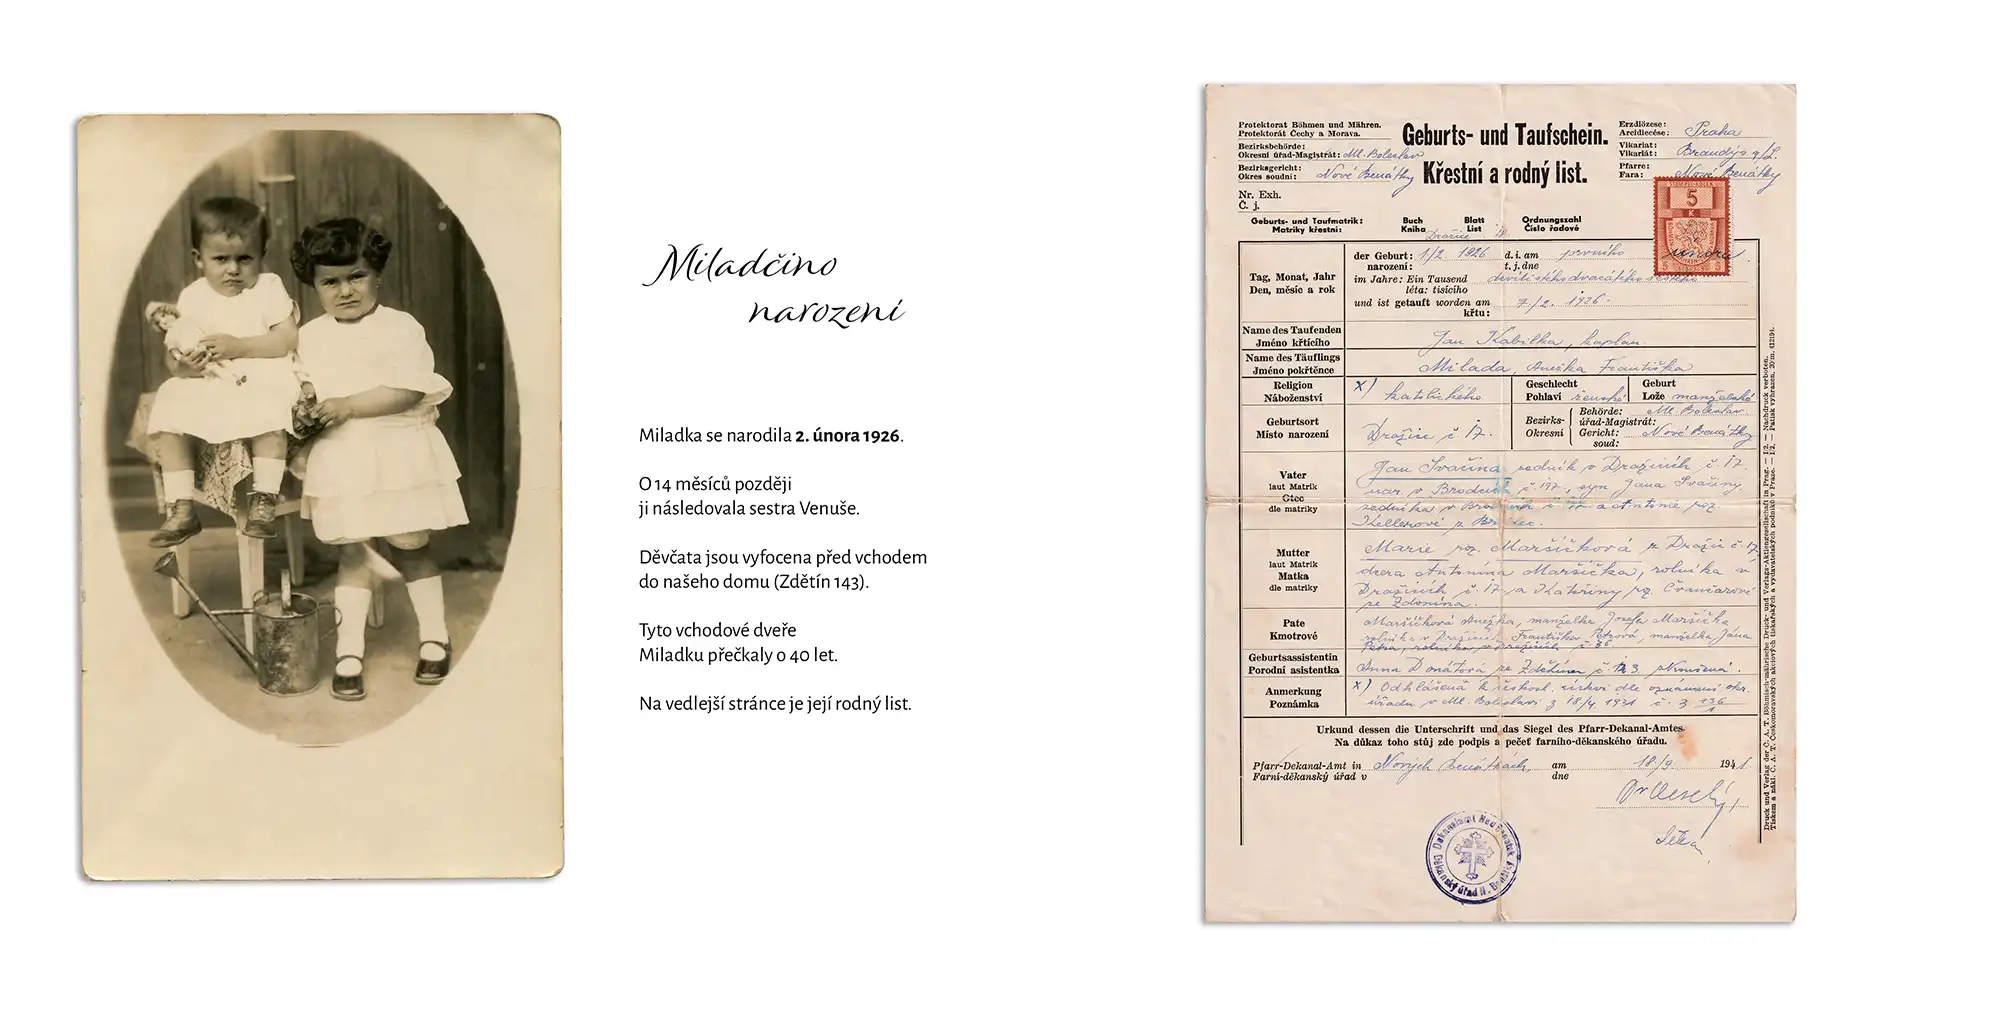 Miladčino
narození
Miladka se narodila 2. února 1926.
O 14 měsíců později
ji následovala sestra Venuše.
Děvčata jsou vyfocena před vchodem
do našeho domu (Zdětín 143).
Tyto vchodové dveře
Miladku přečkaly o 40 let.
Na vedlejší stránce je její rodný list.
Protektorat Böhmen und Mähren.
Protektorát Čechy a Morava.
Bezirksbehörde:
Okresní úřad-Magistrát: Ml. Boleslav
Bezirksgericht:
Okres soudní: Nové Benátky
Nr. Exh.
Č. j.
Geburts- und Taufschein.
Křestní a rodný list.
Erzdiözese:
Arcidiecése: Praha
Vikariat:
Vikariát: Brandýs n/L.
Pfarre:
Fara: Nové Benátky
5
K
Geburts- und Taufmatrik: Buch Blatt Ordnungszahl
Matriky křestní: Kniha Dražice List Číslo řadové
Tag, Monat, Jahr
Den, měsíc a rok
der Geburt: 1/2 1926 d. i. am prvního února
narození: t. j. dne
im Jahre: Ein Tausend devítistéhodvacátého šestého
léta: tisícího
und ist getauft worden am 7/2. 1926.
křtu:
Name des Taufenden
Jméno křtícího
Jan Kabilka, kaplan
Name des Täuflings
Jméno pokřtěnce
Milada, Anežka Františka
Religion
Náboženství
x) katolického
Geschlecht
Pohlaví ženské
Geburt
Lože manželské
Geburtsort
Místo narození
Dražice č. 17.
Bezirks-
Okresní
Behörde: Ml. Boleslav
úřad-Magistrát:
Gericht: Nové Benátky
soud:
Vater
laut Matrik
Otec
dle matriky
Jan Svačina sedník v Dražicích č. 17.
nar. v č. 197, syn Jana Svačiny
sedníka v a Antonie roz.
Kellerové z
Mutter
laut Matrik
Matka
dle matriky
Marie roz. Maršíčková z Dražic č. 17
dcera Antonína Maršíčka, rolníka v
Dražicích č. 17 a Kateřiny roz.
ze Zdonína.
Pate
Kmotrové
Maršíčková Anežka, manželka Josefa Maršíčka
rolníka v Dražicích, Františka Petrová, manželka Jána
Petra, rolníka v Dražicích č. 36
Geburtsassistentin
Porodní asistentka
Anna Donátová ze Zdětína č. 123 zkoušená.
Anmerkung
Poznámka
x) Odhlášena k českosl. církvi dle oznámení okr.
úřadu v Ml. Boleslavi z 18/4 1931 č.
Urkund dessen die Unterschrift und das Siegel des Pfarr-Dekanal-Amtes
Na důkaz toho stůj zde podpis a pečeť farního-děkanského úřadu.
Pfarr-Dekanal-Amt in Nových Benátkách, am 18/9. 1941.
Farní-děkanský úřad v dne
Dr Veselý,
děkan
Druck und Verlag der C. A. T. Böhmisch-mährische Druck- und Verlags-Aktiengesellschaft in Prag. — I/2. — Nachdruck verboten.
Tiskem a nákl. C. A. T. Českomoravských akciových tiskařských a vydavatelských podniků v Praze. — I/2. — Patisk vyhrazen.